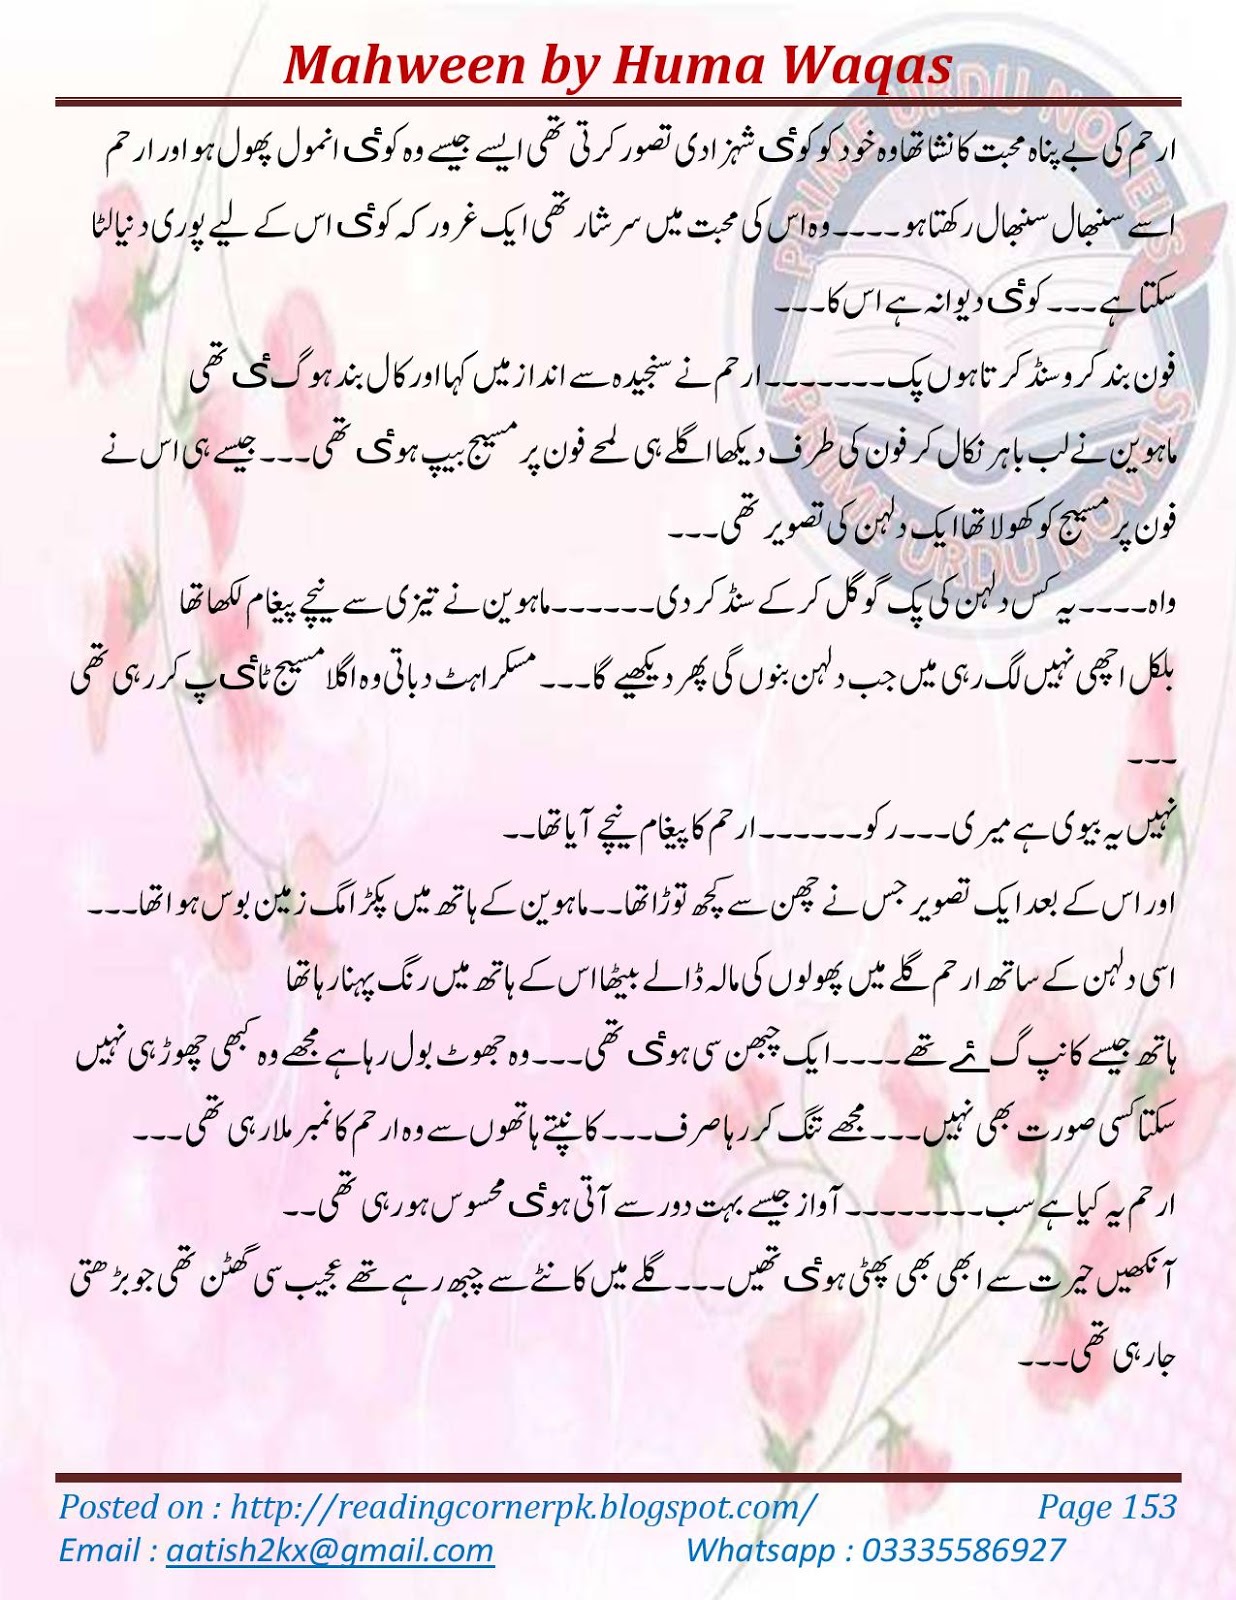 Mahween by Huma Waqas
ارحم کی بے پناہ محبت کا نشا تھا وہ خود کو کوئی شہزادی تصور کرتی تھی ایسے جیسے وہ کوئی انمول پھول ہو اور ارحم
اسے سنبھال سنبھال رکھتا ہو ۔۔۔۔ وہ اس کی محبت میں سرشار تھی ایک غرور کہ کوئی اس کے لیے پوری دنیا لٹا
سکتا ہے ۔۔۔ کوئی دیوانہ ہے اس کا۔۔۔
فون بند کرو سنڈ کرتا ہوں پک۔۔۔۔۔۔۔ ارحم نے سنجیدہ سے انداز میں کہا اور کال بند ہو گئی تھی
ماہوین نے لب باہر نکال کر فون کی طرف دیکھا اگلے ہی لمحے فون پر مسیج بیپ ہوئی تھی۔۔۔ جیسے ہی اس نے
فون پر مسیج کو کھولا تھا ایک دلہن کی تصویر تھی۔۔۔
واہ۔۔۔۔ یہ کس دلہن کی پک گوگل کر کے سنڈ کر دی۔۔۔۔۔۔ ماہوین نے تیزی سے نیچے پیغام لکھا تھا
بلکل اچھی نہیں لگ رہی میں جب دلہن بنوں گی پھر دیکھیے گا۔۔۔ مسکراہٹ دباتی وہ اگلا مسیج ٹائپ کر رہی تھی
۔۔۔
نہیں یہ بیوی ہے میری۔۔۔ رکو۔۔۔۔۔۔ ارحم کا پیغام نیچے آیا تھا۔۔
اور اس کے بعد ایک تصویر جس نے چھن سے کچھ توڑا تھا۔۔ ماہوین کے ہاتھ میں پکڑا مگ زمین بوس ہوا تھا۔۔۔
اسی دلہن کے ساتھ ارحم گلے میں پھولوں کی مالہ ڈالے بیٹھا اس کے ہاتھ میں رنگ پہنا رہا تھا
ہاتھ جیسے کانپ گئے تھے۔۔۔۔ ایک چبھن سی ہوئی تھی۔۔۔ وہ جھوٹ بول رہا ہے مجھے وہ کبھی چھوڑ ہی نہیں
سکتا کسی صورت بھی نہیں۔۔۔ مجھے تنگ کر رہا صرف۔۔۔ کانپتے ہاتھوں سے وہ ارحم کا نمبر ملا رہی تھی۔۔۔
ارحم یہ کیا ہے سب۔۔۔۔۔۔۔۔ آواز جیسے بہت دور سے آتی ہوئی محسوس ہو رہی تھی۔۔
آنکھیں حیرت سے ابھی بھی پھٹی ہوئی تھیں۔۔۔ گلے میں کانٹے سے چبھ رہے تھے عجیب سی گھٹن تھی جو بڑھتی
جا رہی تھی۔۔۔
PRIME URDU NOVELS
PRIME URDU NOVELS
Posted on : http://readingcornerpk.blogspot.com/ Page 153
Email : aatish2kx@gmail.com Whatsapp : 03335586927